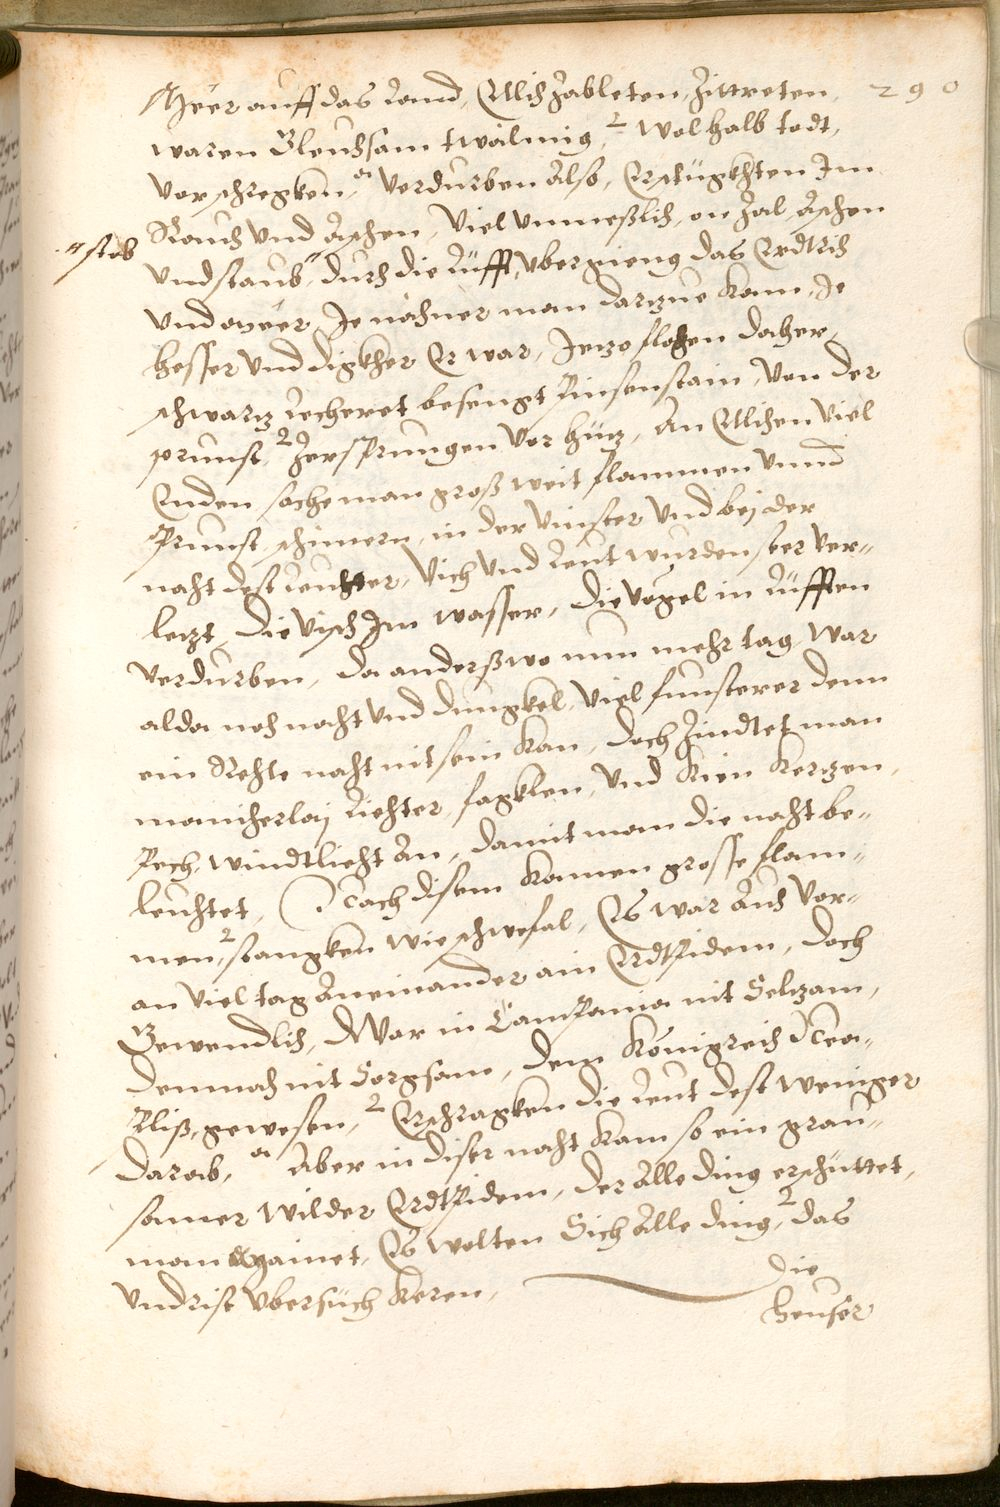 290
Meer auff das Land, Etlich zableten, zittreten,
waren Gleuchsam twalmig, 2 wol halb todt,
vor schregken, a verdurben also, Erstügkhten Im
Rauch und Aschen, Viel unmeßlich, on zal, Aschen
"stob
und staub" durch die Lüfft, ubergieng das Erdtrich
und Meer, Je nahner man darzue kam, Je
hesser und digkher Er war, Jezo flohen daher,
schwarz Lecheret besengt Pinsenstain, Von der
prunst, 2 Zersprungen vor hüz, An Etlichen viel
Enden sache man groß weit flammen unnd
Prunst, schimern, in der vinster und bej der
naht dest leuhter, Vich und Leut wurden seer ver-
lezt, die Visch Im wasser, die Vögel in Lüfften
verdurben, da anderßwo nun mehr tag, war
alda noch naht und dungkel, viel finsterer denn
ein Rehte naht nit sein kan, doch zindtet man
mancherlaj Liehter, fagklen, und Kien Kerzen,
Pech, windtlieht an, damit man die naht be-
leuchtet, Nach disem kamen grosse flam-
men, 2 stangken wie schwefal, Es war auch vor-
an viel tag Aneinander ain Erdtpidem, doch
Gewendlich, War in Campania nit Selzam,
dennoch nit Sorgsam, dem Königreich Nea-
pliß, gewesen, 2 Erschragken die Leut dest weniger
darab, a Aber in diser naht kam so ein grau-
samer wilder Erdtpidem, der Alle ding erschüttet,
man mainet, Es wolten Sich Alle ding, 2 das
underst ubersüch keren,
die
heuser